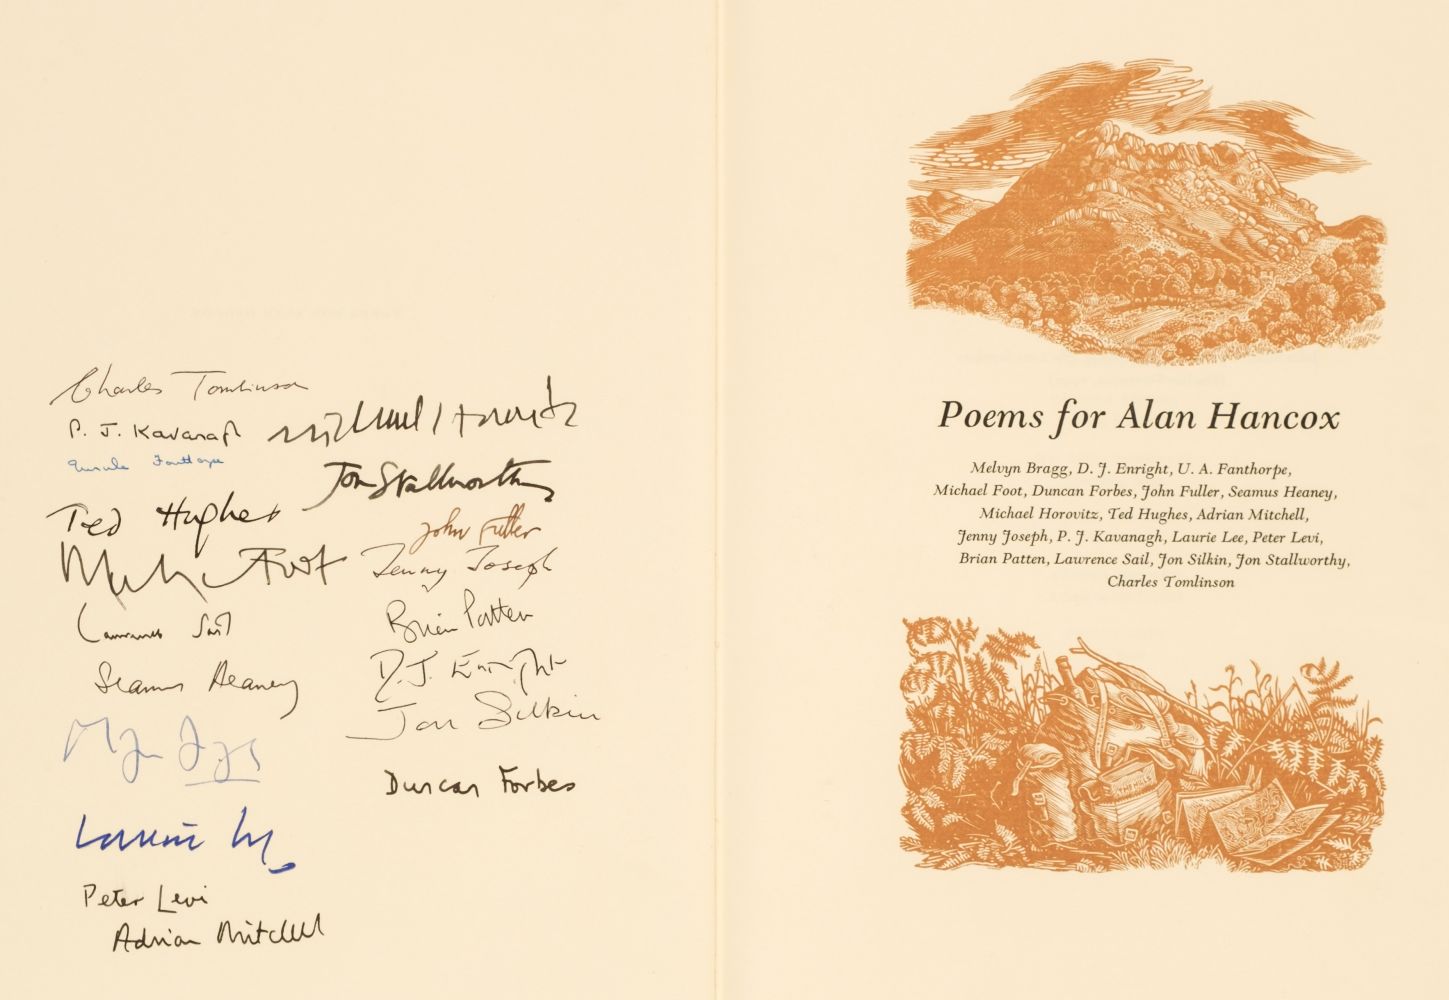 Charles Tomlinson
P. J. Kavanagh
Michael Horovitz
Ursula Fanthorpe
Jon Stallworthy
Ted Hughes
John Fuller
Michael Foot
Jenny Joseph
Lawrence Sail
Brian Patten
Seamus Heaney
D. J. Enright
Jon Silkin
Duncan Forbes
Laurie Lee
Peter Levi
Adrian Mitchell
Poems for Alan Hancox
Melvyn Bragg, D. J. Enright, U. A. Fanthorpe,
Michael Foot, Duncan Forbes, John Fuller, Seamus Heaney,
Michael Horovitz, Ted Hughes, Adrian Mitchell,
Jenny Joseph, P. J. Kavanagh, Laurie Lee, Peter Levi,
Brian Patten, Lawrence Sail, Jon Silkin, Jon Stallworthy,
Charles Tomlinson